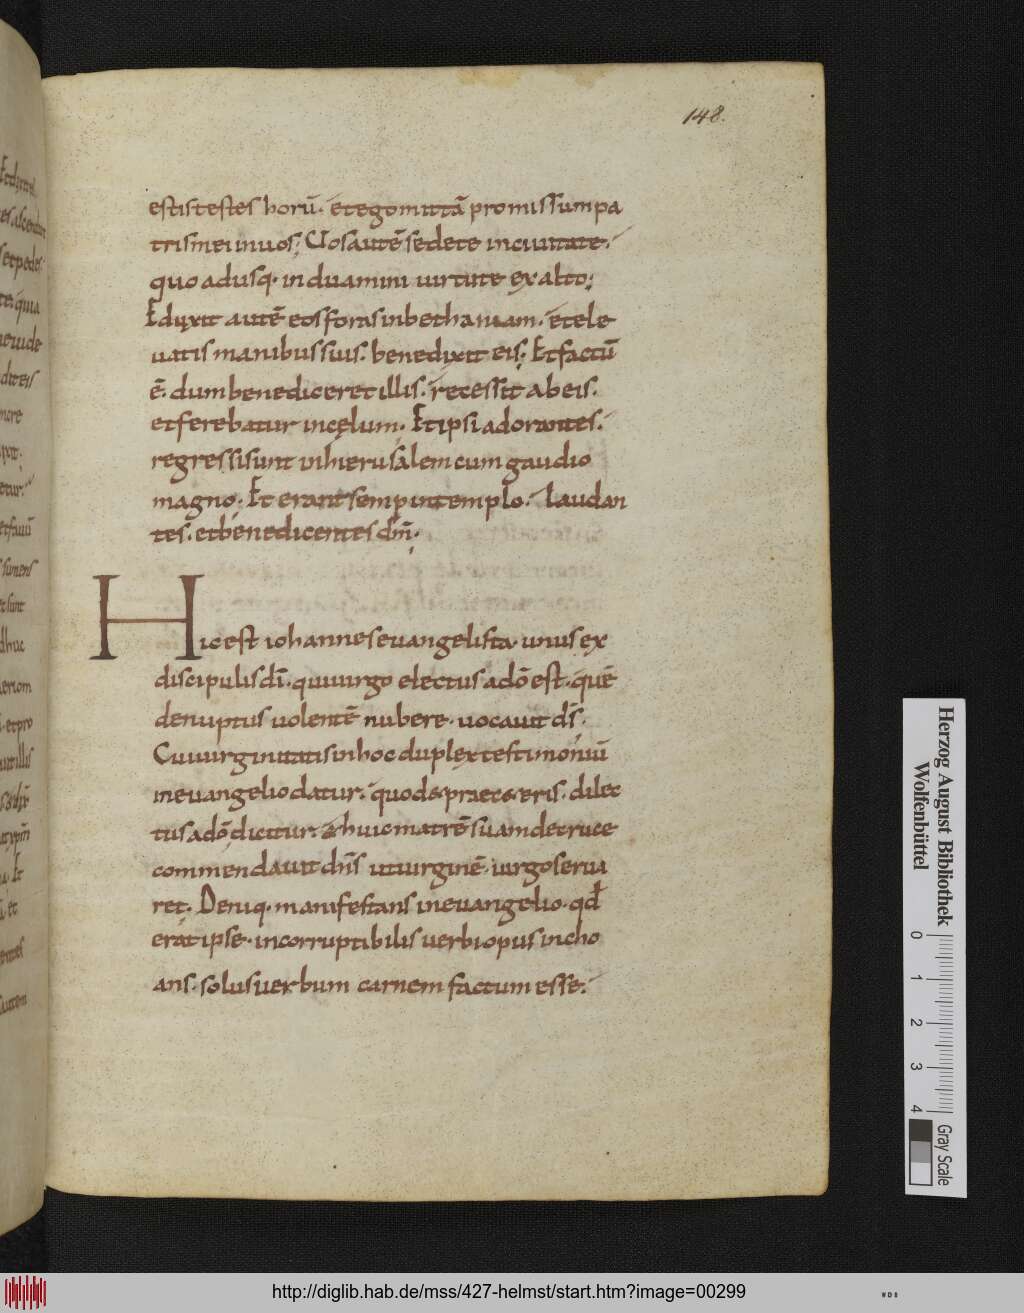 148.
estis testes horū. et ego mittā promissum pa
tris mei in uos; Uos autē sedete in ciuitate.
quo adusq. induamini uirtute ex alto;
Eduxit autē eos foras in bethaniam. et ele
uatis manibus suis. benedixit eis; Et factū
ē. dum benediceret illis. recessit ab eis.
et ferebatur in cęlum. Et ipsi adorantes.
regressi sunt in hierusalem cum gaudio
magno; Et erant semp in templo. laudan
tes. et benedicentes dm̄;
Hic est iohannes euangelista. unus ex
discipulis dī. qui uirgo electus a dō est. quē
de nuptus uolentē nubere. uocauit ds̄.
Cui uirginitatis in hoc duplex testimoniū
in euangelio datur. quod & prae c&eris. dilec
tus a dō dicitur. & huic matrē suam de cruce
commendauit dn̄s ut uirginē. uirgo serua
ret. Deniq. manifestans in euangelio. qd̄
erat ipse. incorruptibilis uerbi opus incho
ans. solus uerbum carnem factum esse.
Herzog August Bibliothek
Wolfenbüttel
0 1 2 3 4
Gray Scale
http://diglib.hab.de/mss/427-helmst/start.htm?image=00299